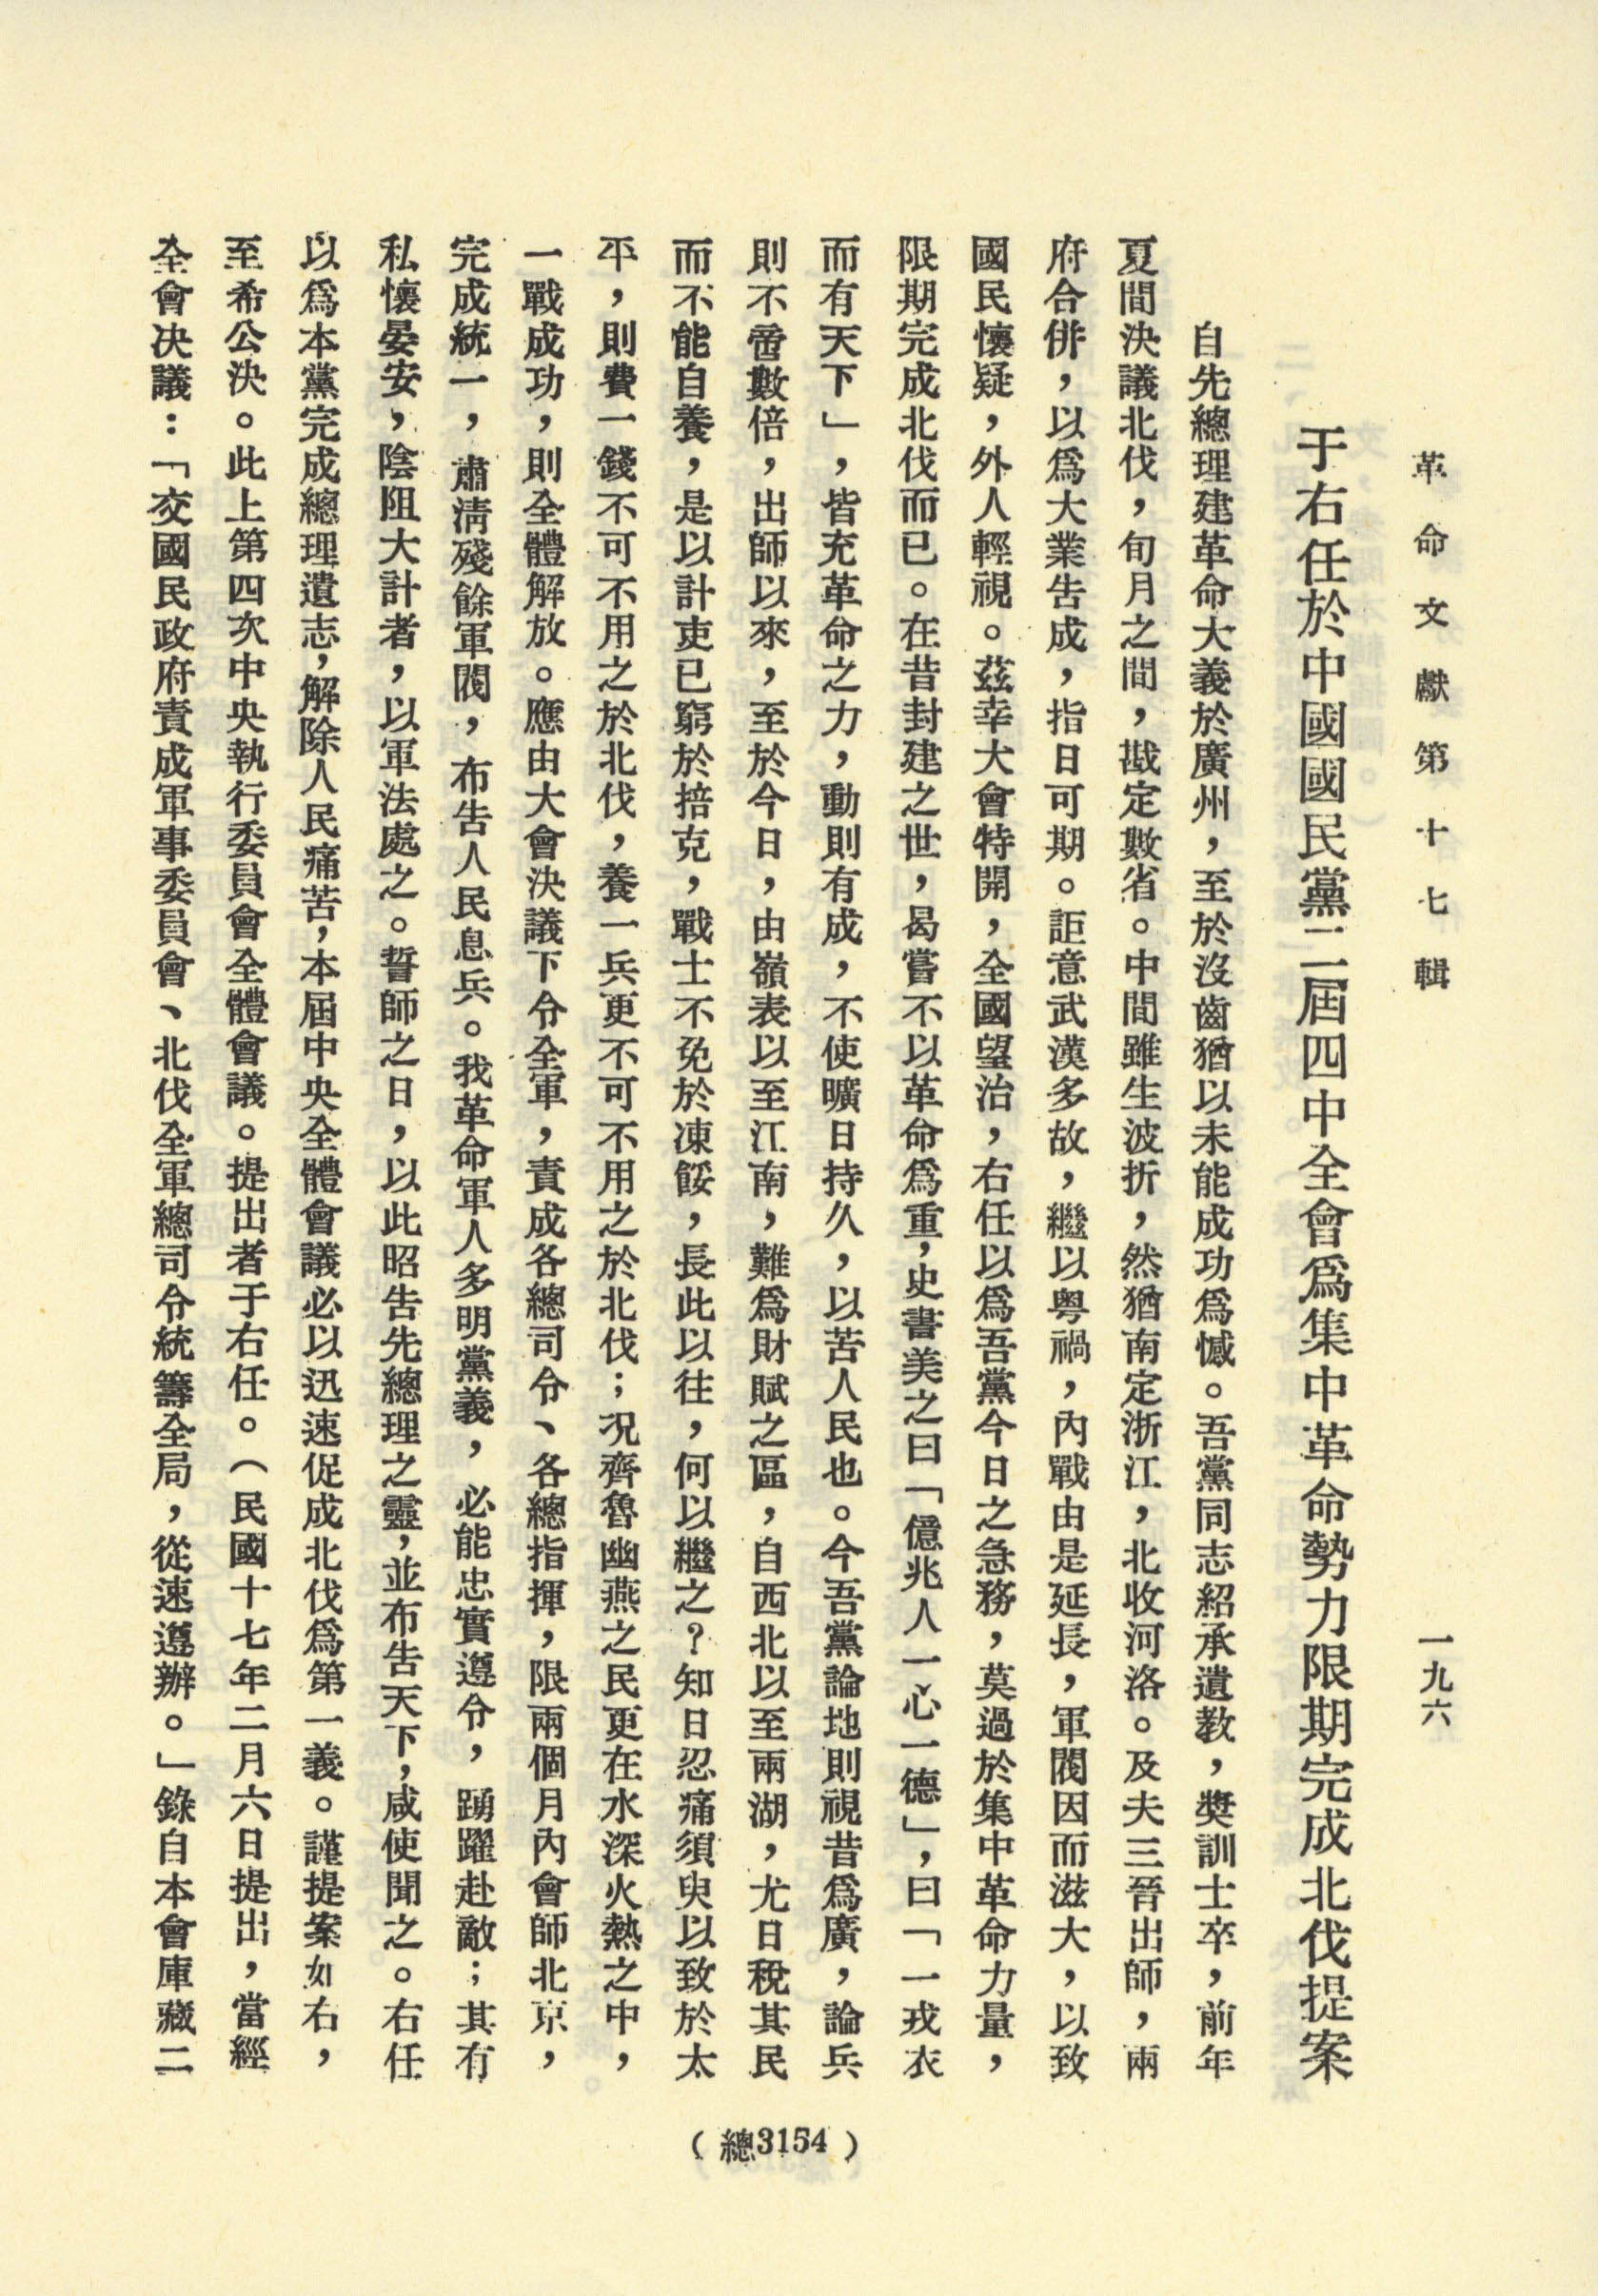 革命文獻第十七輯
一九六
于右任於中國國民黨二屆四中全會爲集中革命勢力限期完成北伐提案
自先總理建革命大義於廣州，至於沒齒猶以未能成功爲憾。吾黨同志紹承遺教，獎訓士卒，前年
夏間決議北伐，旬月之間，戡定數省。中間雖生波折，然猶南定浙江，北收河洛。及夫三晉出師，兩
府合併，以爲大業告成，指日可期。詎意武漢多故，繼以粤禍，內戰由是延長，軍閥因而滋大，以致
國民懷疑，外人輕視。茲幸大會特開，全國望治，右任以爲吾黨今日之急務，莫過於集中革命力量，
限期完成北伐而已。在昔封建之世，曷嘗不以革命爲重，史書美之曰「億兆人一心一德」，曰「一戎衣
而有天下」，皆充革命之力，動則有成，不使曠日持久，以苦人民也。今吾黨論地則視昔爲廣，論兵
則不啻數倍，出師以來，至於今日，由嶺表以至江南，難爲財賦之區，自西北以至兩湖，尤日稅其民
而不能自養，是以計吏已窮於掊克，戰士不免於凍餒，長此以往，何以繼之？知日忍痛須臾以致於太
平，則費一錢不可不用之於北伐，養一兵更不可不用之於北伐；况齊魯幽燕之民更在水深火熱之中，
一戰成功，則全體解放。應由大會決議下令全軍，責成各總司令、各總指揮，限兩個月內會師北京，
完成統一，肅淸殘餘軍閥，布告人民息兵。我革命軍人多明黨義，必能忠實遵令，踴躍赴敵；其有
私懷晏安，陰阻大計者，以軍法處之。誓師之日，以此昭告先總理之靈，並布告天下，咸使聞之。右任
以爲本黨完成總理遺志，解除人民痛苦，本屆中央全體會議必以迅速促成北伐爲第一義。謹提案如右，
至希公決。此上第四次中央執行委員會全體會議。提出者于右任。（民國十七年二月六日提出，當經
全會決議：「交國民政府責成軍事委員會、北伐全軍總司令統籌全局，從速遵辦。」錄自本會庫藏二
（總3154）